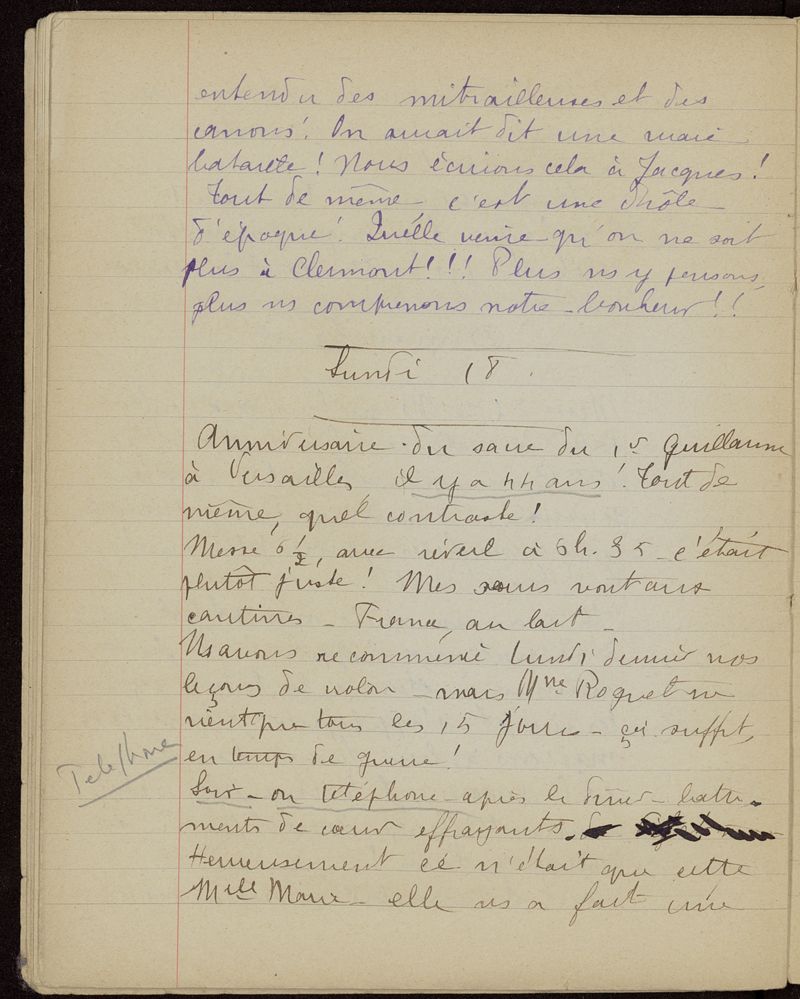 entendu des mitrailleuses et des
canons! On aurait dit une vraie
bataille! Nous écrivons cela à Jacques!
Tout de même c'est une drôle
d'époque! Quelle veine qu'on ne soit
plus à Clermont!!! Plus ns y pensons,
plus ns comprenons notre bonheur!!
Lundi 18.
Anniversaire du sacre du 1er Guillaume
à Versailles, il y a 44 ans! Tout de
même, quel contraste!
Messe 6 1/2, avec réveil à 6h.35 c'était
plutôt juste! Mes sœurs vont aux
cantines - France, au lait -
Ns avons recommencé lundi dernier nos
leçons de violon - mais Mme Roquet ne
vient que tous les 15 jours - ça suffit,
en temps de guerre!
Telephone
Soir - on téléphone après le dîner - batte-
ments de cœur effrayants.
Heureusement ce n'était que cette
Melle Marie - elle ns a fait une